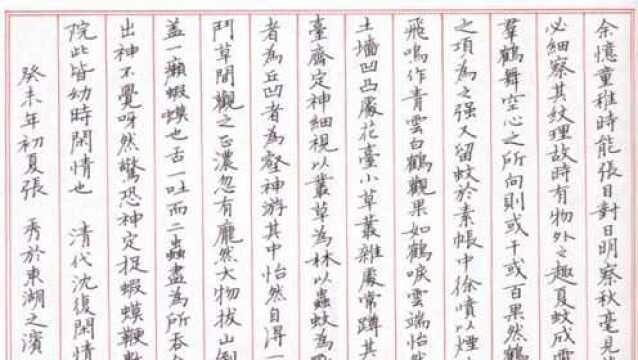 余憶童稚時能張目對日明察秋毫見
必細察其紋理故時有物外之趣夏蚊成
羣鶴舞空心之所向則或千或百果然鶴
之項為之强又留蚊於素帳中徐噴以煙
飛鳴作青雲白鶴觀果如鶴唳雲端怡然
土墻凹凸處花臺小草叢雜處常蹲其
臺齊定神細視以叢草為林以蟲蚊為
者為丘凹者為壑神游其中怡然自得一
鬥草間觀之正濃忽有龐然大物拔山倒
蓋一癩蝦蟆也舌一吐而二蟲盡為所吞
出神不覺呀然驚恐神定捉蝦蟆鞭數
院此皆幼時閑情也 清代沈復閑情
癸未年初夏張 秀於東湖之濱